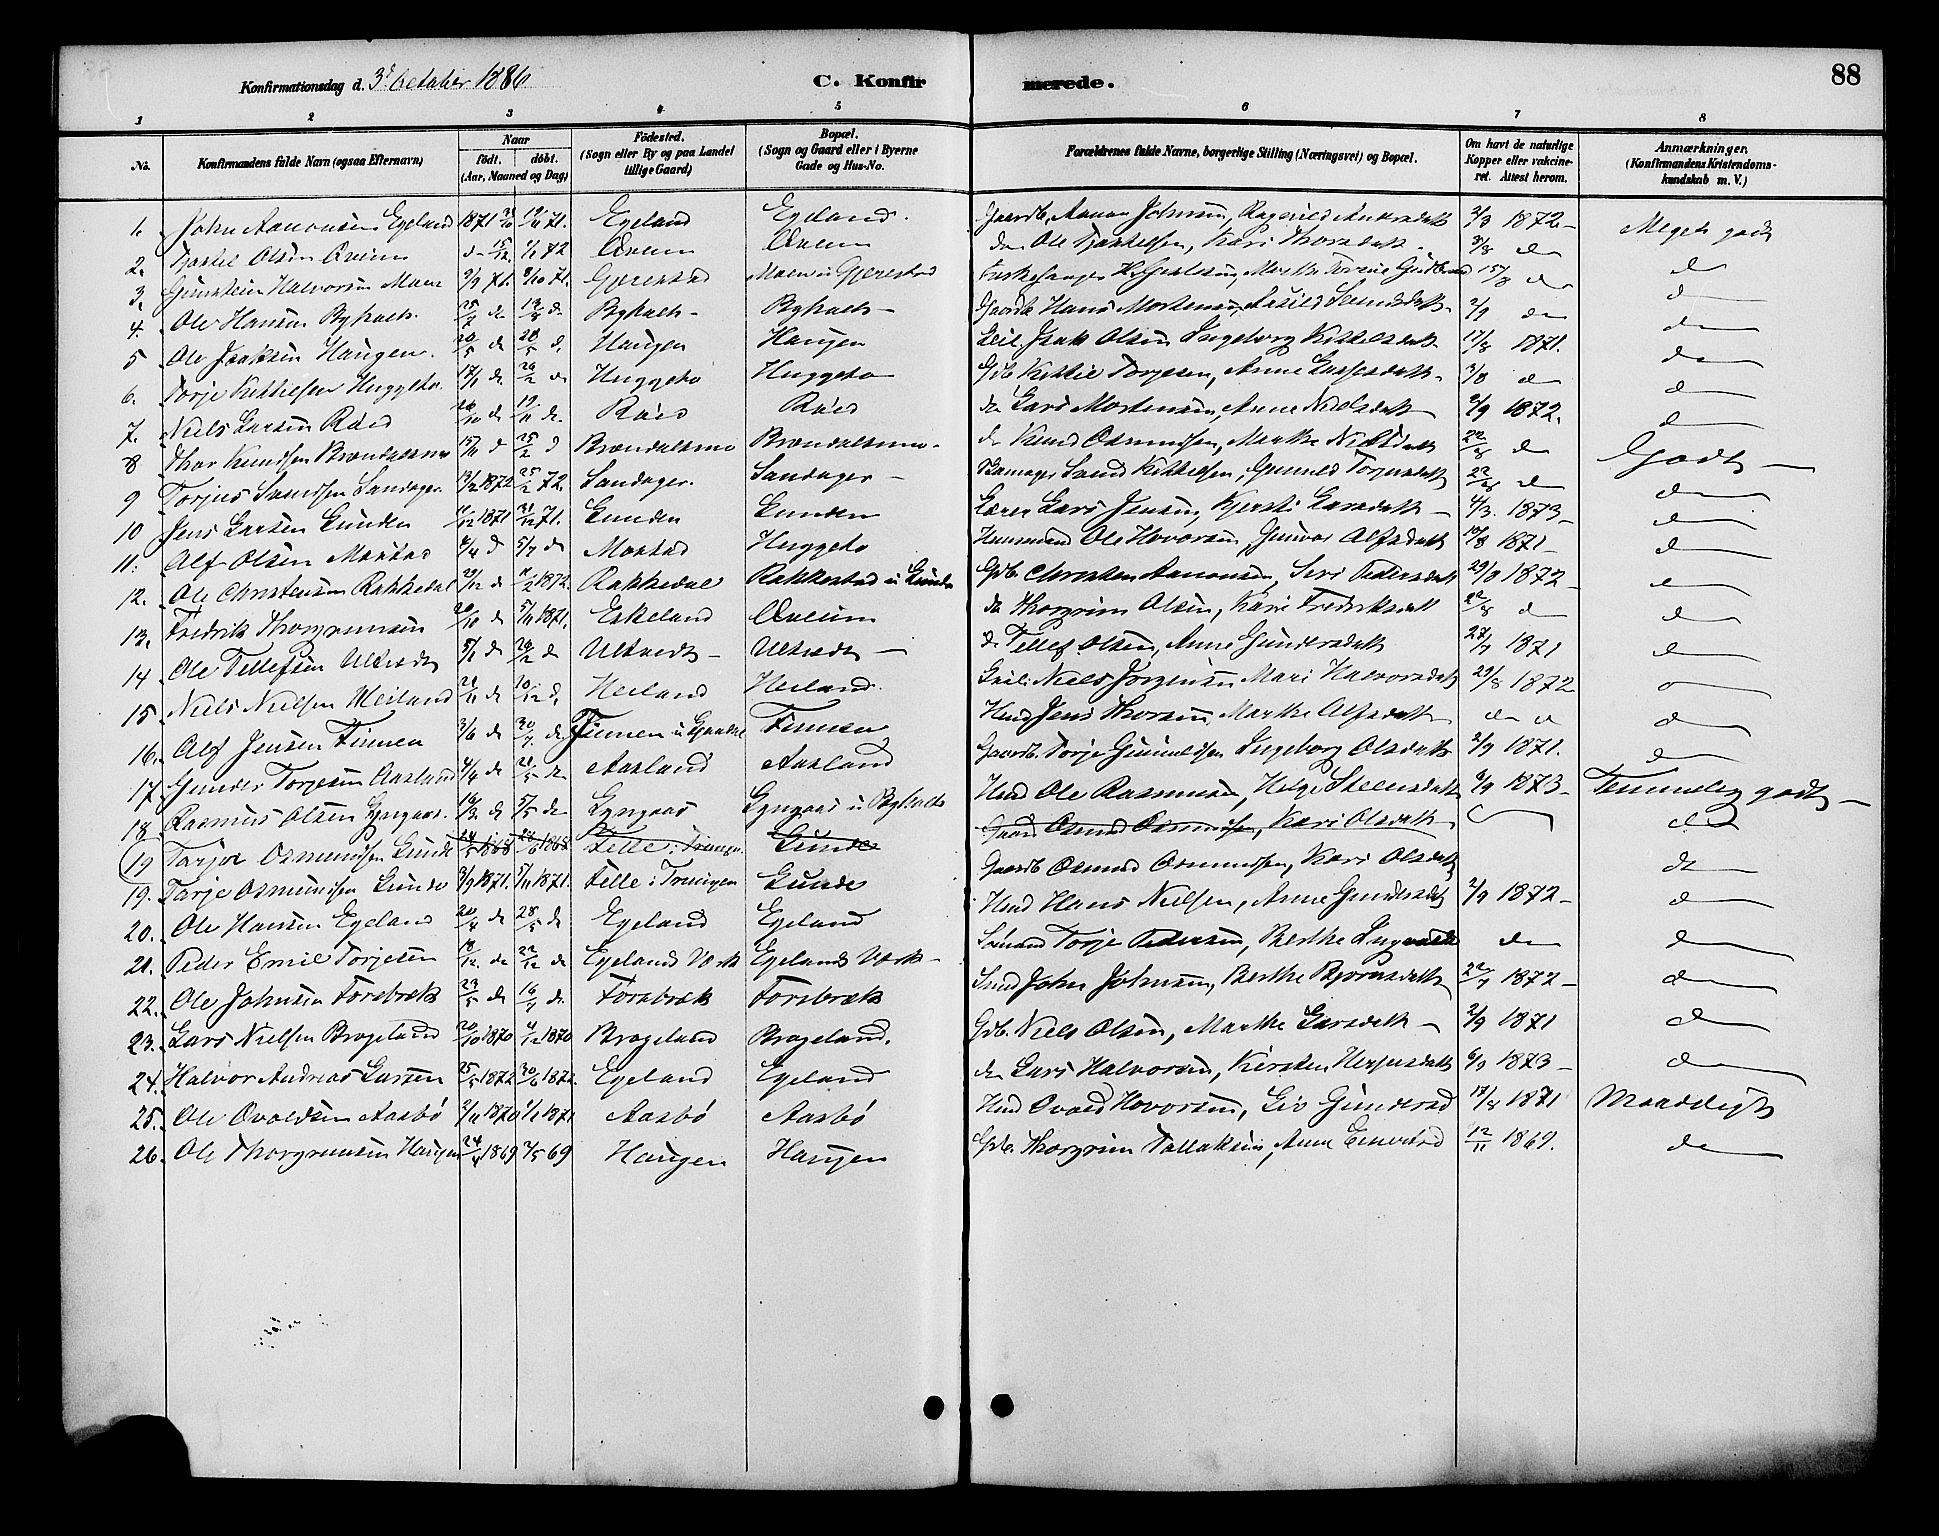 88
Konfirmationsdag d. 3d October 1886
C. Konfirmerede.
1 2 3 4 5 6 7 8
No. Konfirmandens fulde Navn (ogsaa Efternavn) Naar födt. döbt. (Aar, Maaned og Dag) Födested. (Sogn eller By og paa Landet tillige Gaard) Bopæl. (Sogn og Gaard eller i Byerne Gade og Hus-No. Forældrenes fulde Navne, borgerlige Stilling (Næringsvei) og Bopæl. Om havt de naturlige Kopper eller vakcineret. Attest herom. Anmærkninger. (Konfirmandens Kristendomskundskab m. V.)
1. John Aanonsen Egeland 1871 71. Egeland Egeland. Gaardb. Aanon Johnsen, 2/3 1872 Meget godt
2. Kjostel Olsen Øveim d 15/12 1/1 72 Øveim Øveim do Ole Kjostelsen, Kari do do
3. Gunstein Halvorsen Moen 2/9 71. 8/10 71. Gjerestad Moen i Gjerestad 15/8 do do
4. Ole Hansen Byholt 25/7 do do Byholt Byholt Gaardb Hans Mortensen, 2/9 do do
5 Ole Isaksen Haugen. 20/5 do 28/5 d. Haugen Haugen Leil. Isak Olsen Ingeborg Kittelsdatt. 17/8 1871. do
6. Torje Kittelsen Huggeto. do do Huggeto Huggeto Gdb Kittel Torjesen, Anne do do
7. Niels Larsen Röed 20/10 do 19/11 do. Röed Röed do Lars Mortensen, Anne Nielsdatt 2/9 1872. do
8 Thor Knudsen Brændalsmo 15/11 d 25/2 d Brændalsmo Brændalsmo do Knud Osmundsen, Marthe Nielsdatt 22/8 do Godt
9 Torjus Sandsager 1872 25/2 72. Sandager. Sandager Kittelsen, Gunild 22/8 do do
10 Jens Larsen Lunden 11/12 1871 31/12 71. Lunden Lunden Lærer Lars Jensen, Kjersti Larsdatt 4/3. 1873 do
11. Alf Olsen Mostad 4/4 d 5/7 do Mostad Huggeto Huusmand Ole Hovorsen, Gunvor Alfsdatt 10/8 1871 do
12. Ole Christensen Rakkedal do 11/2 1872. Rakkedal Rakkestad i Lunde Gdb. Christen Aanonsen, Siri Pedersdatt 29/8 1872 do
13. Fredrik Thorgrimsen 20/10 do 5/11 1871. Eskeland Øveim do Thorgrim Olsen, Kari Fredriksdatt 22/8 do do
14 Ole Tellefsen Ulltvedt 5/1 do do Ulltvedt Ulltvedt do Tellef Olsen, Anne Gundersdatt 27/7 1871 do
15 Niels Nielsen Heiland do 10/12 d. Heiland Heiland. Leil. Niels Jörgensen Mari Halvorsdatt 29/8 1872 do
16. Alf Jensen Finnen 3/6 do 30/7. do. Finnen Finnen Hmd Jens Thorsen, Marthe Alfsdatt do d do
17 Gunder Torjesen Aasland 4/4 do do Aasland Aasland Gaardb. Torje Gunnuldsen Ingeborg Olsdatt 2/9 1871. do
18 Rasmus Olsen Lyngaas. do 5/5 do Lyngaas Lyngaas i Byholt Hmd Ole Rasmussen, Helge Steensdatt 6/9 1873 Temmelig godt
19 Tarjei Osmundsen Lunde 1868 1868 Felle i Lunde Gaard Osmund Osmundsen, Kari Olsdatt do
19. Tarje Osmundsen Lunde 3/9 1871. 5/11 1871. Felle i Lunde Gaardb Osmund Osmundsen, Kari Olsdatt do
20. Ole Hansen Egeland 20/4 do 28/5 do Egeland Egeland Hmd Hans Nielsen, Anne Gundersdatt 2/9 1872 do
21. Peder Emil Torjesen 18/12. do do Egelands Værk Egelands Værk Sömand Torje Pedersen, Berthe do do
22. Ole Johnsen Forsbræk 23/5 do 16/7 do. Forsbræk Forsbræk John Johnsen, Berthe Bjornsdatt 22/7 1872 do
23. Lars Nielsen Brogeland 20/10 1870 4/12 1870 Brogeland Brogeland. Gdb. Niels Olsen, Marthe Larsdatt 2/9 1871 do
24. Halvor Andreas Larsen 25/5 1872 30/6 1872. Egeland Egeland do Lars Halvorsen, Kirsten 6/9 1873 do
25. Ole Ovaldsen Aasbö 2/11 1870 1/1 1871 Aasbö Aasbö Hmd Ovald Hovorsen, Liv Gundersd 17/8 1871 Maadeligt
26. Ole Thorgrimsen Haugen 24/4 1869 7/5 69 Haugen Haugen Gdb. Thorgrim Tallaksen, Anne 12/11 1869. do